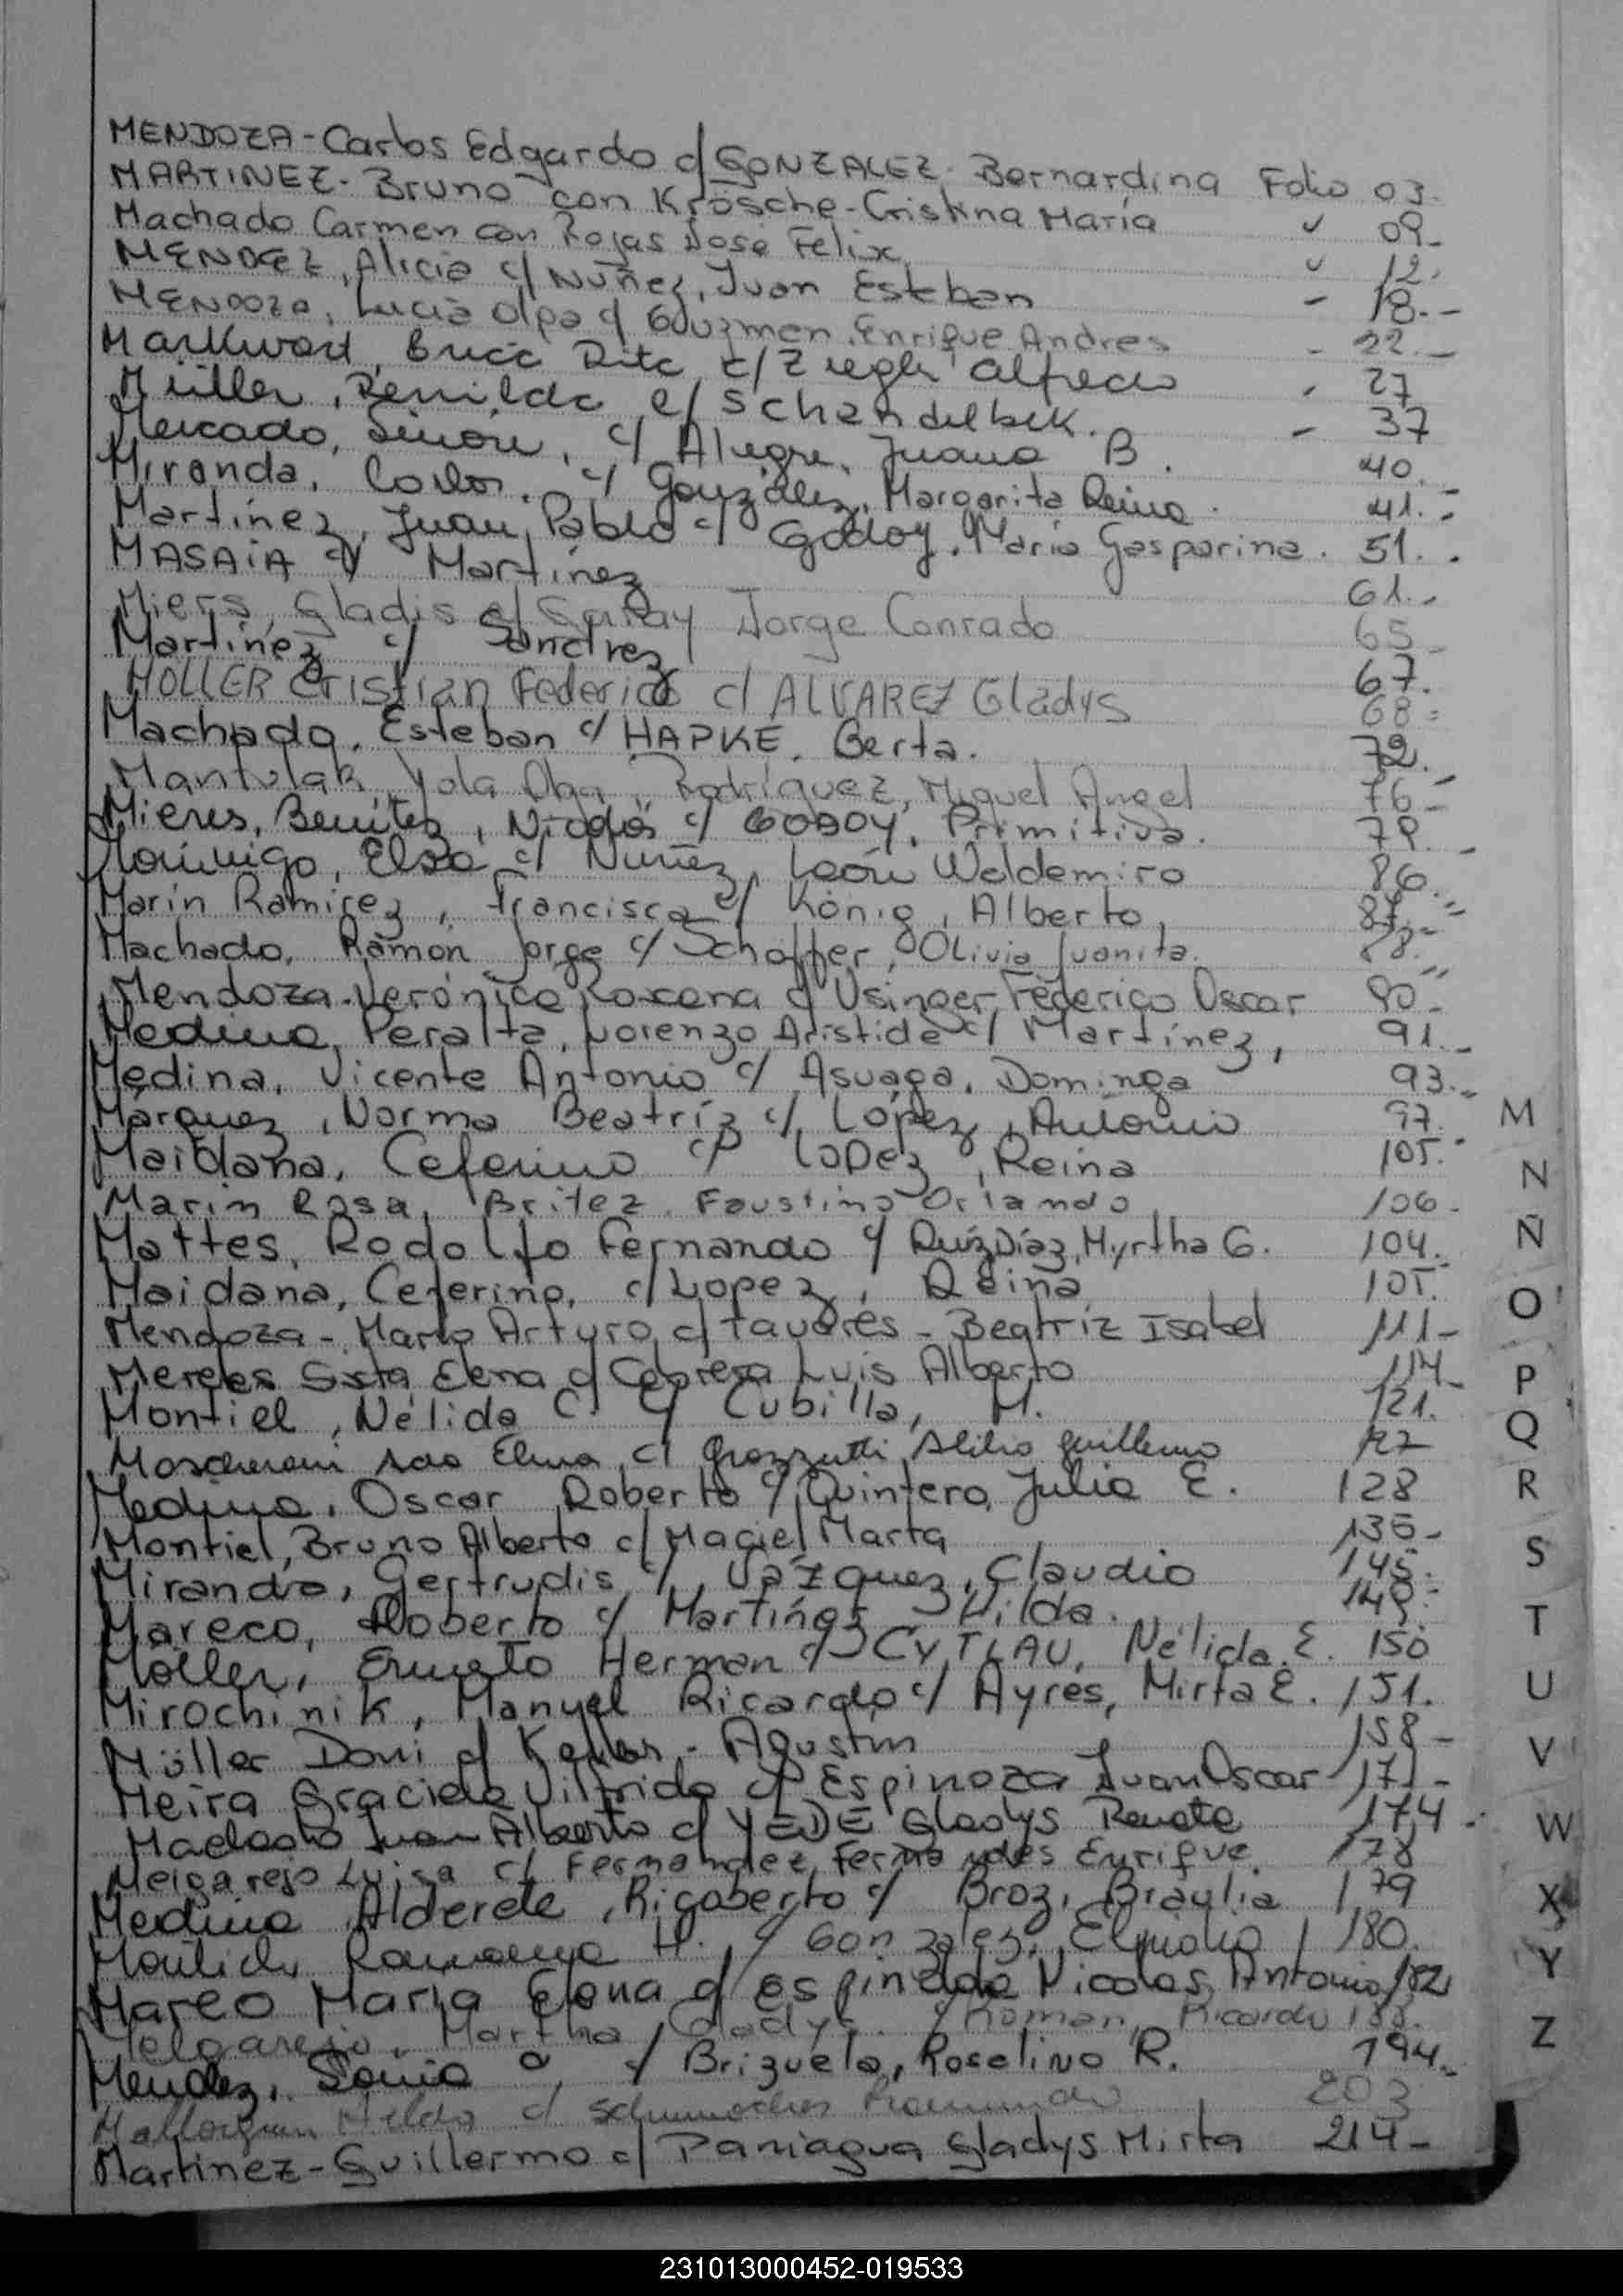 MENDOZA - Carlos Edgardo c/ GONZALEZ - Bernardina Folio 03.
MARTINEZ - Bruno con Krösche - Cristina María " 09-
Machado Carmen con Rojas José Felix " 12.
MENDEZ, Alicia c/ Nuñez, Juan Esteban - 18.-
MENDOZA, Lucia Olga c/ Guzman, Enrique Andres - 22.-
Markwart, Rita c/ Ziegler Alfredo 27
Müller, Renilda c/ Schendelbek. - 37
Mercado, Simón, c/ Alegre, Juana B. 40.
Miranda, Carlos. c/ González, Margarita Reina. 41.-
Martínez, Juan Pablo c/ Godoy, María Gasparina. 51.-
MASAIA c/ Martínez 61.-
Miers, Gladis c/ Garay Jorge Conrado 65-
Martínez c/ Sanchez 67.
MOLLER Cristian Federico c/ ALVAREZ Gladys 68-
Machado, Esteban c/ HAPKE, Berta. 72.-
Mantulak Yola Olga, Rodríguez, Miguel Angel 76-
Mieres, Benítez, Nicolás c/ GODOY, Primitiva. 79.-
Elsa c/ Nuñez, León Waldemiro 86.-
Marín Ramírez, Francisca c/ König, Alberto, 87.-
Machado, Ramón Jorge c/ Schaffer, Olivia Juanita. 88.
Mendoza - Verónica Roxana c/ Usinger, Federico Oscar 90-
Medina, Peralta, Lorenzo Aristide c/ Martínez, 91.-
Medina, Vicente Antonio c/ Asuaga, Dominga 93.-
Márquez, Norma Beatríz c/ López, Antonio 97.
M
Maidana, Ceferino c/ López, Reina 105.
N
Marin Rosa, Britez, Faustino Orlando 106-
Mattes, Rodolfo Fernando c/ Ruíz Díaz, Myrtha G. 104.
Ñ
Maidana, Ceferino, c/ Lopez, Reina 105.
O
Mendoza - Mario Arturo c/ Tavares - Beatríz Isabel 111-
Mereles Sixta Elena c/ Cabrera Luis Alberto 114-
P
Montiel, Nélida C. c/ Cubilla, M. 121.
Q
Elma c/ Grazzutti, Atilio Guillermo 127
Medina, Oscar Roberto c/ Quintero, Julia E. 128
R
Montiel, Bruno Alberto c/ Maciel Marta 135-
S
Miranda, Gertrudis c/ Vázquez, Claudio 145.
Mareco, Roberto c/ Martínez, Hilda. 149.-
T
Möller, Ernesto Herman c/ CYTLAU, Nélida E. 150
U
Mirochinik, Manuel Ricardo c/ Ayres, Mirta E. 151.
Müller Doni c/ - Agustin 158-
V
Meira Graciela Vilfrida c/ Espinoza Juan Oscar 171-
Machado Juan Alberto c/ YEDE Gladys Renata 174
W
Melgarejo Luisa c/ Fernandez, Enrique 178
Medina Alderete, Rigoberto c/ Broz, Braulia 179
X
Ramona H., c/ Gonzalez, Elpidio 180.
Y
Mareo Maria Elena c/ Espinelda Nicolas Antonio 182
Melgarejo, Martha Gladys c/ Roman, Ricardo 188.
Z
Mendez, Sonia c/ Brizuela, Roselino R. 194.-
Hilda c/ Schumacher Raimundo 203
Martinez - Guillermo c/ Paniagua Gladys Mirta 214-
231013000452-019533